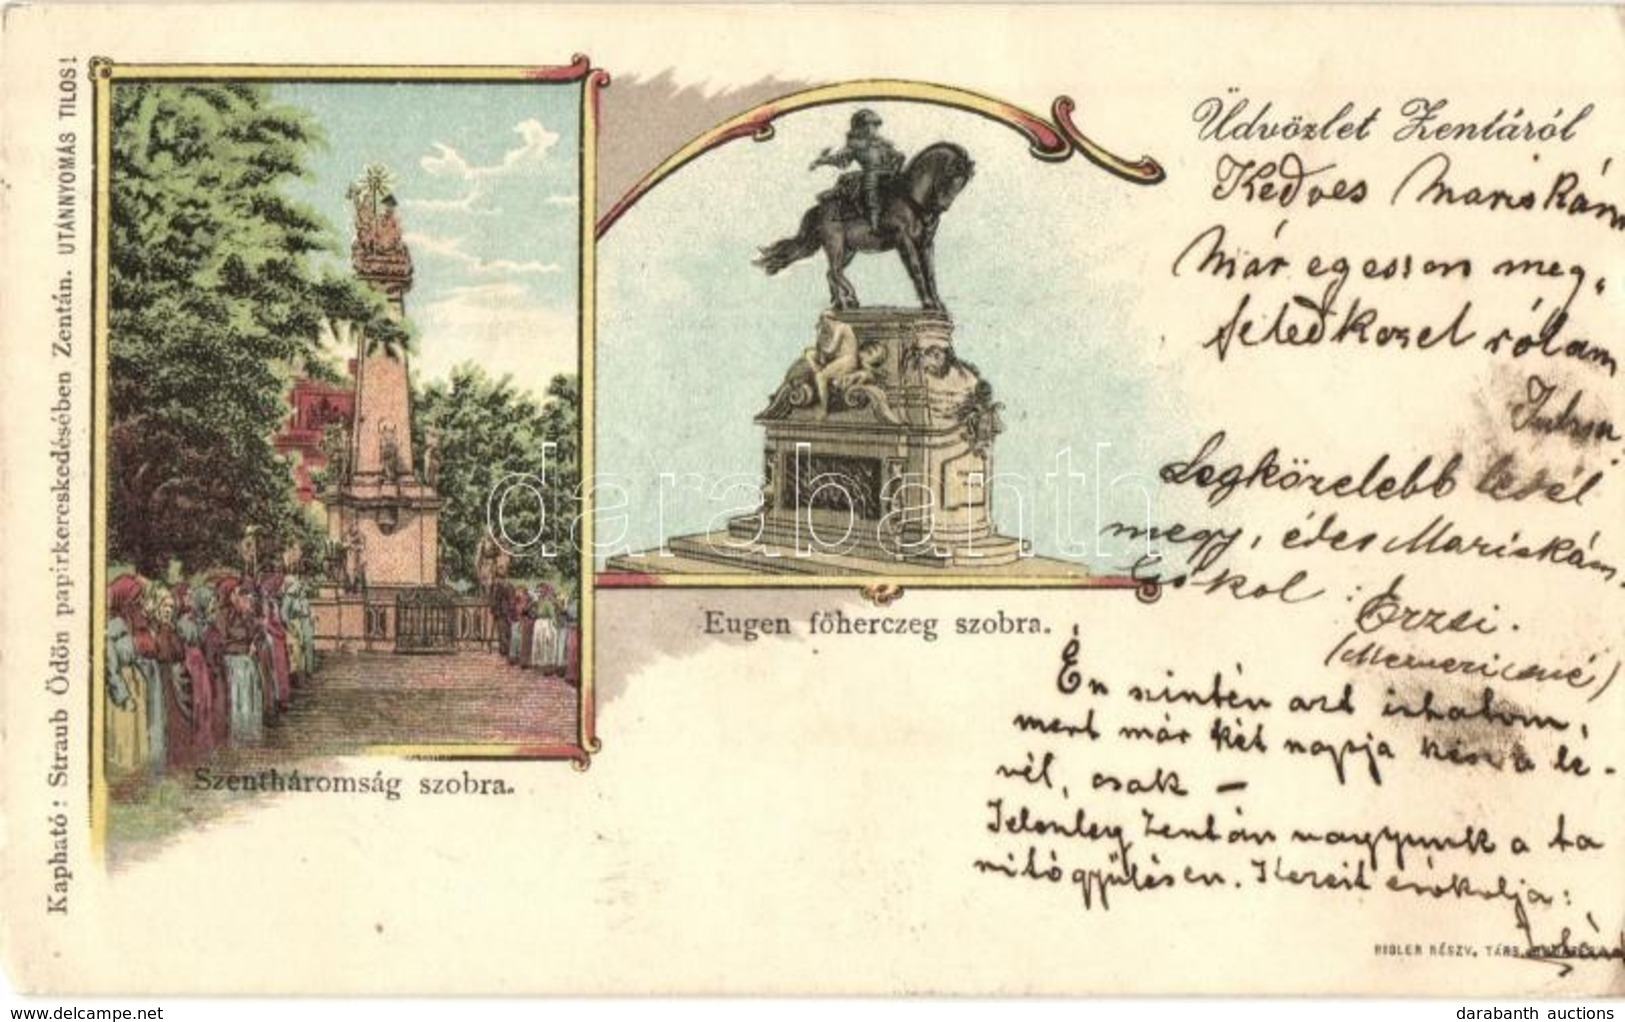 Kapható: Straub Ödön papirkereskedésében Zentán. UTÁNNYOMÁS TILOS!
Üdvözlet Zentáról
Kedves Mariskám
Már egesson meg-
feledkozel rólam
Legközelebb levél
megy, édes Mariskám.
Csókol:
Erzsi.
Eugen főherczeg szobra.
Én szintén azt irhatom,
mert már két napja kész a le-
vél, csak –
Jelenleg Zentán vagyunk a ta
nitógyülésen. Kezeit csókolja:
Szentháromság szobra.
RIGLER RÉSZV. TÁRS. BUDAPEST
darabanth
www.delcampe.net
darabanth auctions